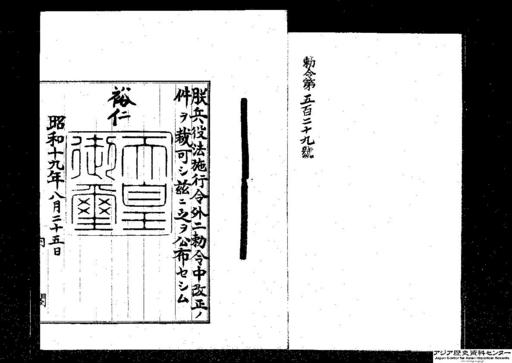 勅令第五百二十九號
朕兵役法施行令外二勅令中改正ノ
件ヲ裁可シ茲ニ之ヲ公布セシム
裕仁
天皇
御璽
昭和十九年八月二十五日
内閣
アジア歴史資料センター
Japan Center for Asian Historical Records